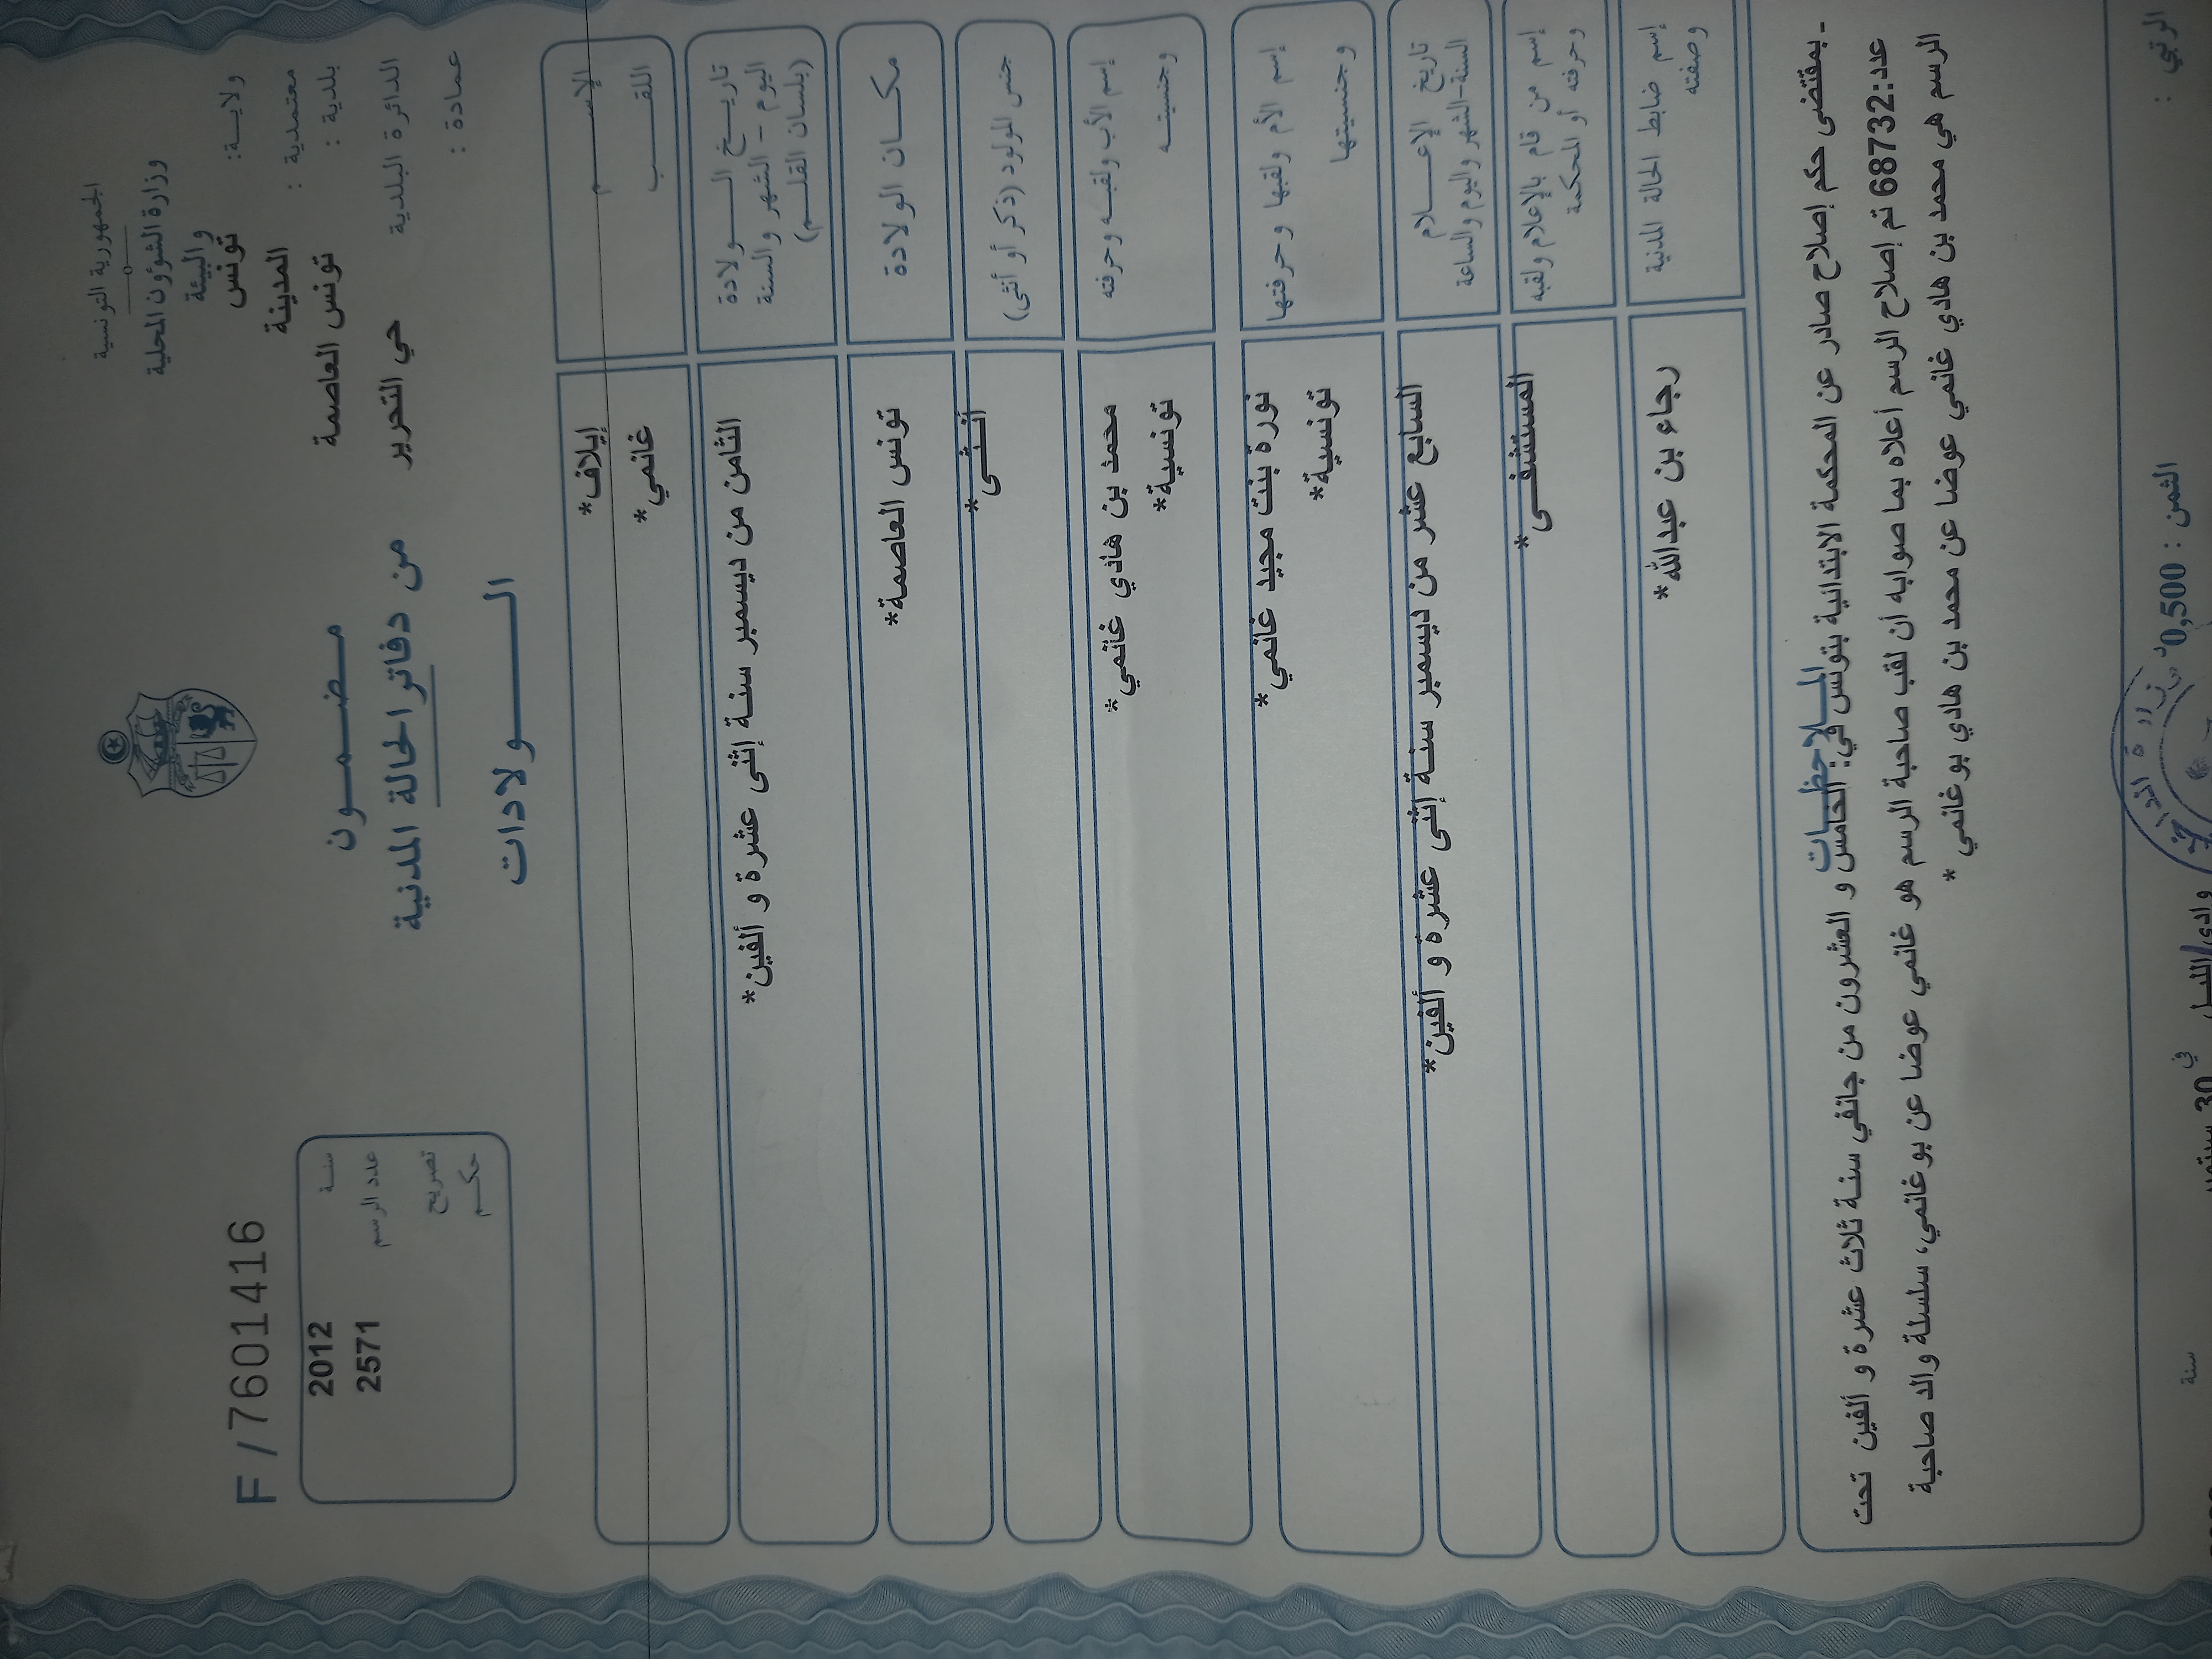 الجمهورية التونسية
وزارة الشؤون المحلية
والبيئة
ولاية: تونس
معتمدية : المدينة
بلدية : تونس العاصمة
الدائرة البلدية حي التحرير
عمادة :
مضمون
من دفاتر الحالة المدنية
الولادات
F / 7601416
سنة 2012
عدد الرسم 2571
تصريح
حكم
الإسم إيلاف*
اللقب غانمي*
تاريخ الولادة الثامن من ديسمبر سنة إثنى عشرة و ألفين*
اليوم - الشهر والسنة
(بلسان القلم)
مكان الولادة تونس العاصمة*
جنس المولود (ذكر أو أنثى) أنثى*
إسم الأب ولقبه وحرفته محمد بن هادي غانمي*
وجنسيته تونسية*
إسم الأم ولقبها وحرفتها نورة بنت مجيد غانمي*
وجنسيتها تونسية*
تاريخ الإعلام السابع عشر من ديسمبر سنة إثنى عشرة و ألفين*
السنة-الشهر واليوم والساعة
إسم من قام بالإعلام ولقبه المستشفى*
وحرفته أو المحكمة
إسم ضابط الحالة المدنية رجاء بن عبدالله*
وصفته
الملاحظات
- بمقتضى حكم إصلاح صادر عن المحكمة الابتدائية بتونس في: الخامس و العشرون من جانفي سنة ثلاث عشرة و ألفين تحت
عدد:68732 تم إصلاح الرسم أعلاه بما صوابه أن لقب صاحبة الرسم هو غانمي عوضا عن بوغانمي، سلسلة والد صاحبة
الرسم هي محمد بن هادي غانمي عوضا عن محمد بن هادي بوغانمي*
الثمن : 0,500 د
وادي الليل في 30 سبتمبر سنة